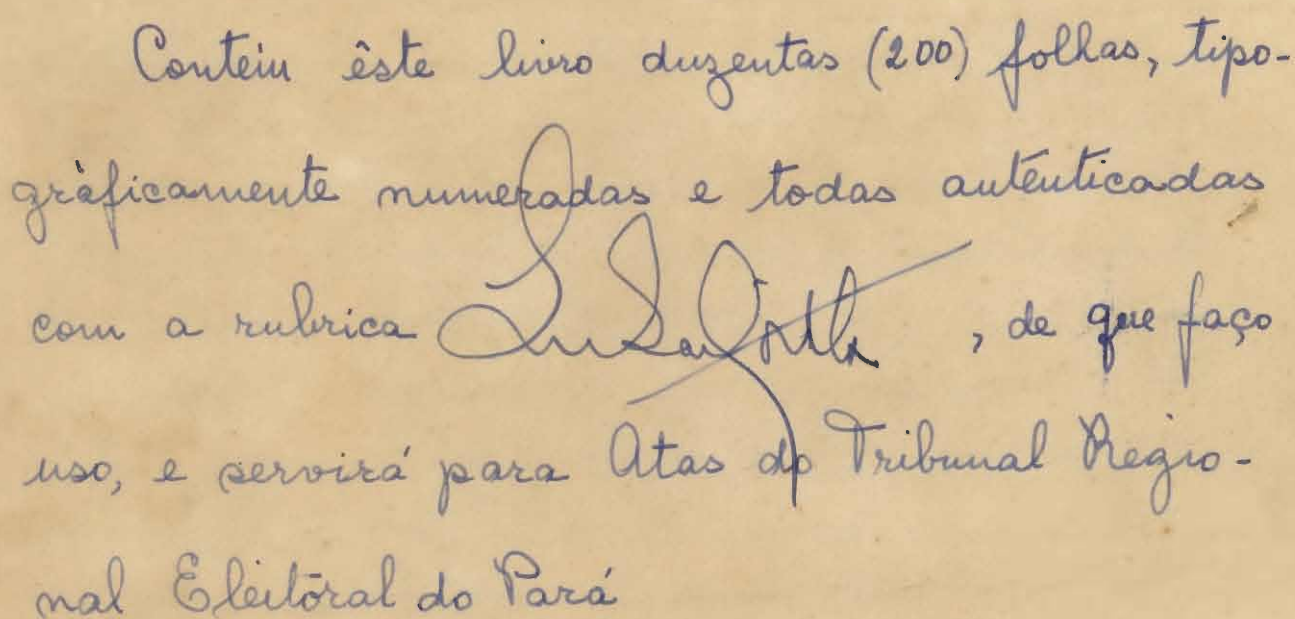 Contém êste livro duzentas (200) folhas, tipo-
gràficamente numeradas e todas autênticadas
com a rubrica , de que faço
uso, e servirá para Atas do Tribunal Regio-
nal Eleitoral do Pará